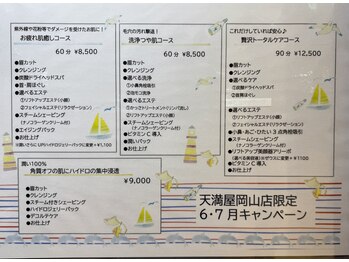 紫外線や花粉等でダメージを受けたお肌に！！
お疲れ肌癒しコース
60分 ¥8,500
●眉カット
●クレンジング
●炭酸ドライヘッドスパ
●首・肩ほぐし
●選べるエステ
①リフトアップエステ(小顔)
②フェイシャルエステ(リラクゼーション)
●スチームシェービング
(ナノコラーゲンクリーム付)
●エイジングパック
●お仕上げ
毛穴の汚れ撃退！
洗浄つや肌コース
60分 ¥8,500
●眉カット
●クレンジング
●選べる洗浄
①小鼻角栓吸引
②毛穴洗浄
●選べるエステ
①リフトアップエステ(小顔)
②フェイシャルエステ(リラクゼーション)
●スチームシェービング
(ナノコラーゲンクリーム付)
●ビタミンC導入
●潤いパック
●お仕上げ
これだけしていれば安心♪
贅沢トータルケアコース
90分 ¥12,500
●眉カット
●クレンジング
●選べるケア
①炭酸ドライヘッドスパ
●選べるエステ
①リフトアップエステ(小顔)
②フェイシャルエステ(リラクゼーション)
●スチームシェービング
(ナノコラーゲンクリーム付)
●小鼻・あご・ひたい3点角栓吸引
●リフトアップ美顔器アリーボ
●ビタミンC導入
●お仕上げ
潤い100％
角質オフの肌にハイドロの集中浸透
¥9,000
●眉カット
●クレンジング
●スチーム付きシェービング
●ハイドロジェリーパック
●デコルテケア
●お仕上げ
天満屋岡山店限定
6・7月キャンペーン